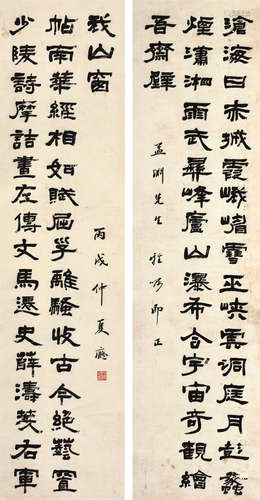 滄海日赤城霞峨嵋雪巫峽雲洞庭月彭蠡
煙瀟湘雨武彝峰廬山瀑布合宇宙奇觀繪
吾齋壁
孟淵先生 雅囑即正
少陵詩摩詰畫左傳文馬遷史薛濤箋右軍
帖南華經相如賦屈子離騷收古今絕藝置
我山窗
丙戌仲夏